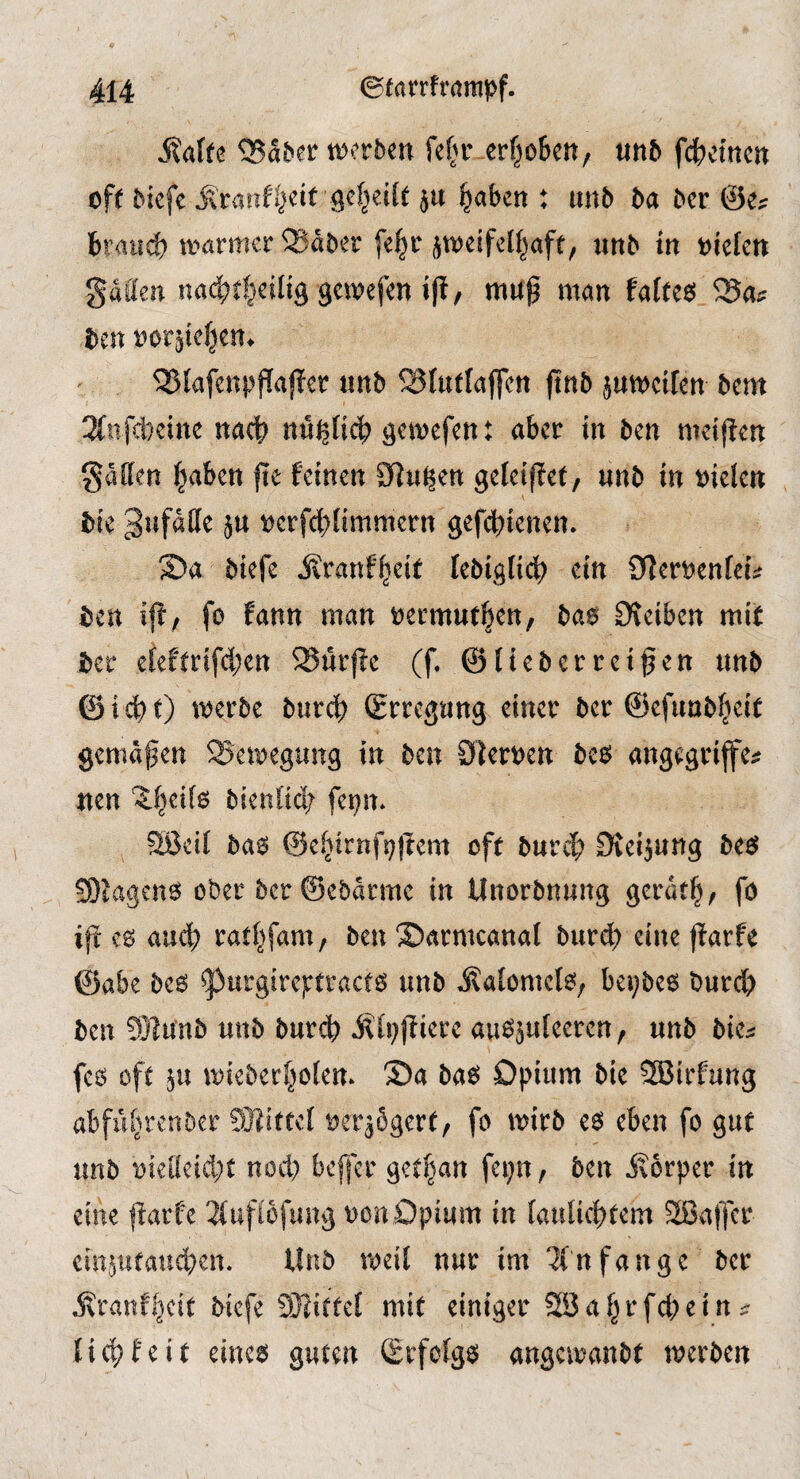 414 Starrkrampf.
Kalte Bäder werden sehr erhoben, und scheinen
oft diese Krankheit geheilt zu haben: und da der Ge-
brauch warmer Bäder sehr zweifelhaft, und in vielen
Fällen nachtheilig gewesen ist, muß man kaltes Ba-
den vorziehen.
Blasenpflaster und Blutlassen sind zuweilen dem
Anscheine nach nützlich gewesen: aber in den meisten
Fällen haben sie keinen Nutzen geleistet, und in vielen
die Zufälle zu verschlimmern geschienen.
Da diese Krankheit lediglich ein Nervenlei-
den ist, so kann man vermuthen, das Reiben mit
der elektrischen Bürste (s. Gliederreißen und
Gicht) werde durch Erregung einer der Gesundheit
gemäßen Bewegung in den Nerven des angegriffe-
nen Theils dienlich seyn.
Weil das Gehirnsystem oft durch Reizung des
Magens oder der Gedärme in Unordnung geräth, so
ist es auch rathsam, den Darmcanal durch eine starke
Gabe des Purgirextracts und Kalomels, beydes durch
den Mund und durch Klystiere auszuleeren, und die-
ses oft zu wiederholen. Da das Opium die Wirkung
abführender Mittel verzögert, so wird es eben so gut
und vielleicht noch besser gethan seyn, den Körper in
eine starke Auflösung von Opium in laulichtem Wasser
einzutauchen. Und weil nur im Anfange der
Krankheit diese Mittel mit einiger Wahrschein-
lichkeit eines guten Erfolgs angewandt werden